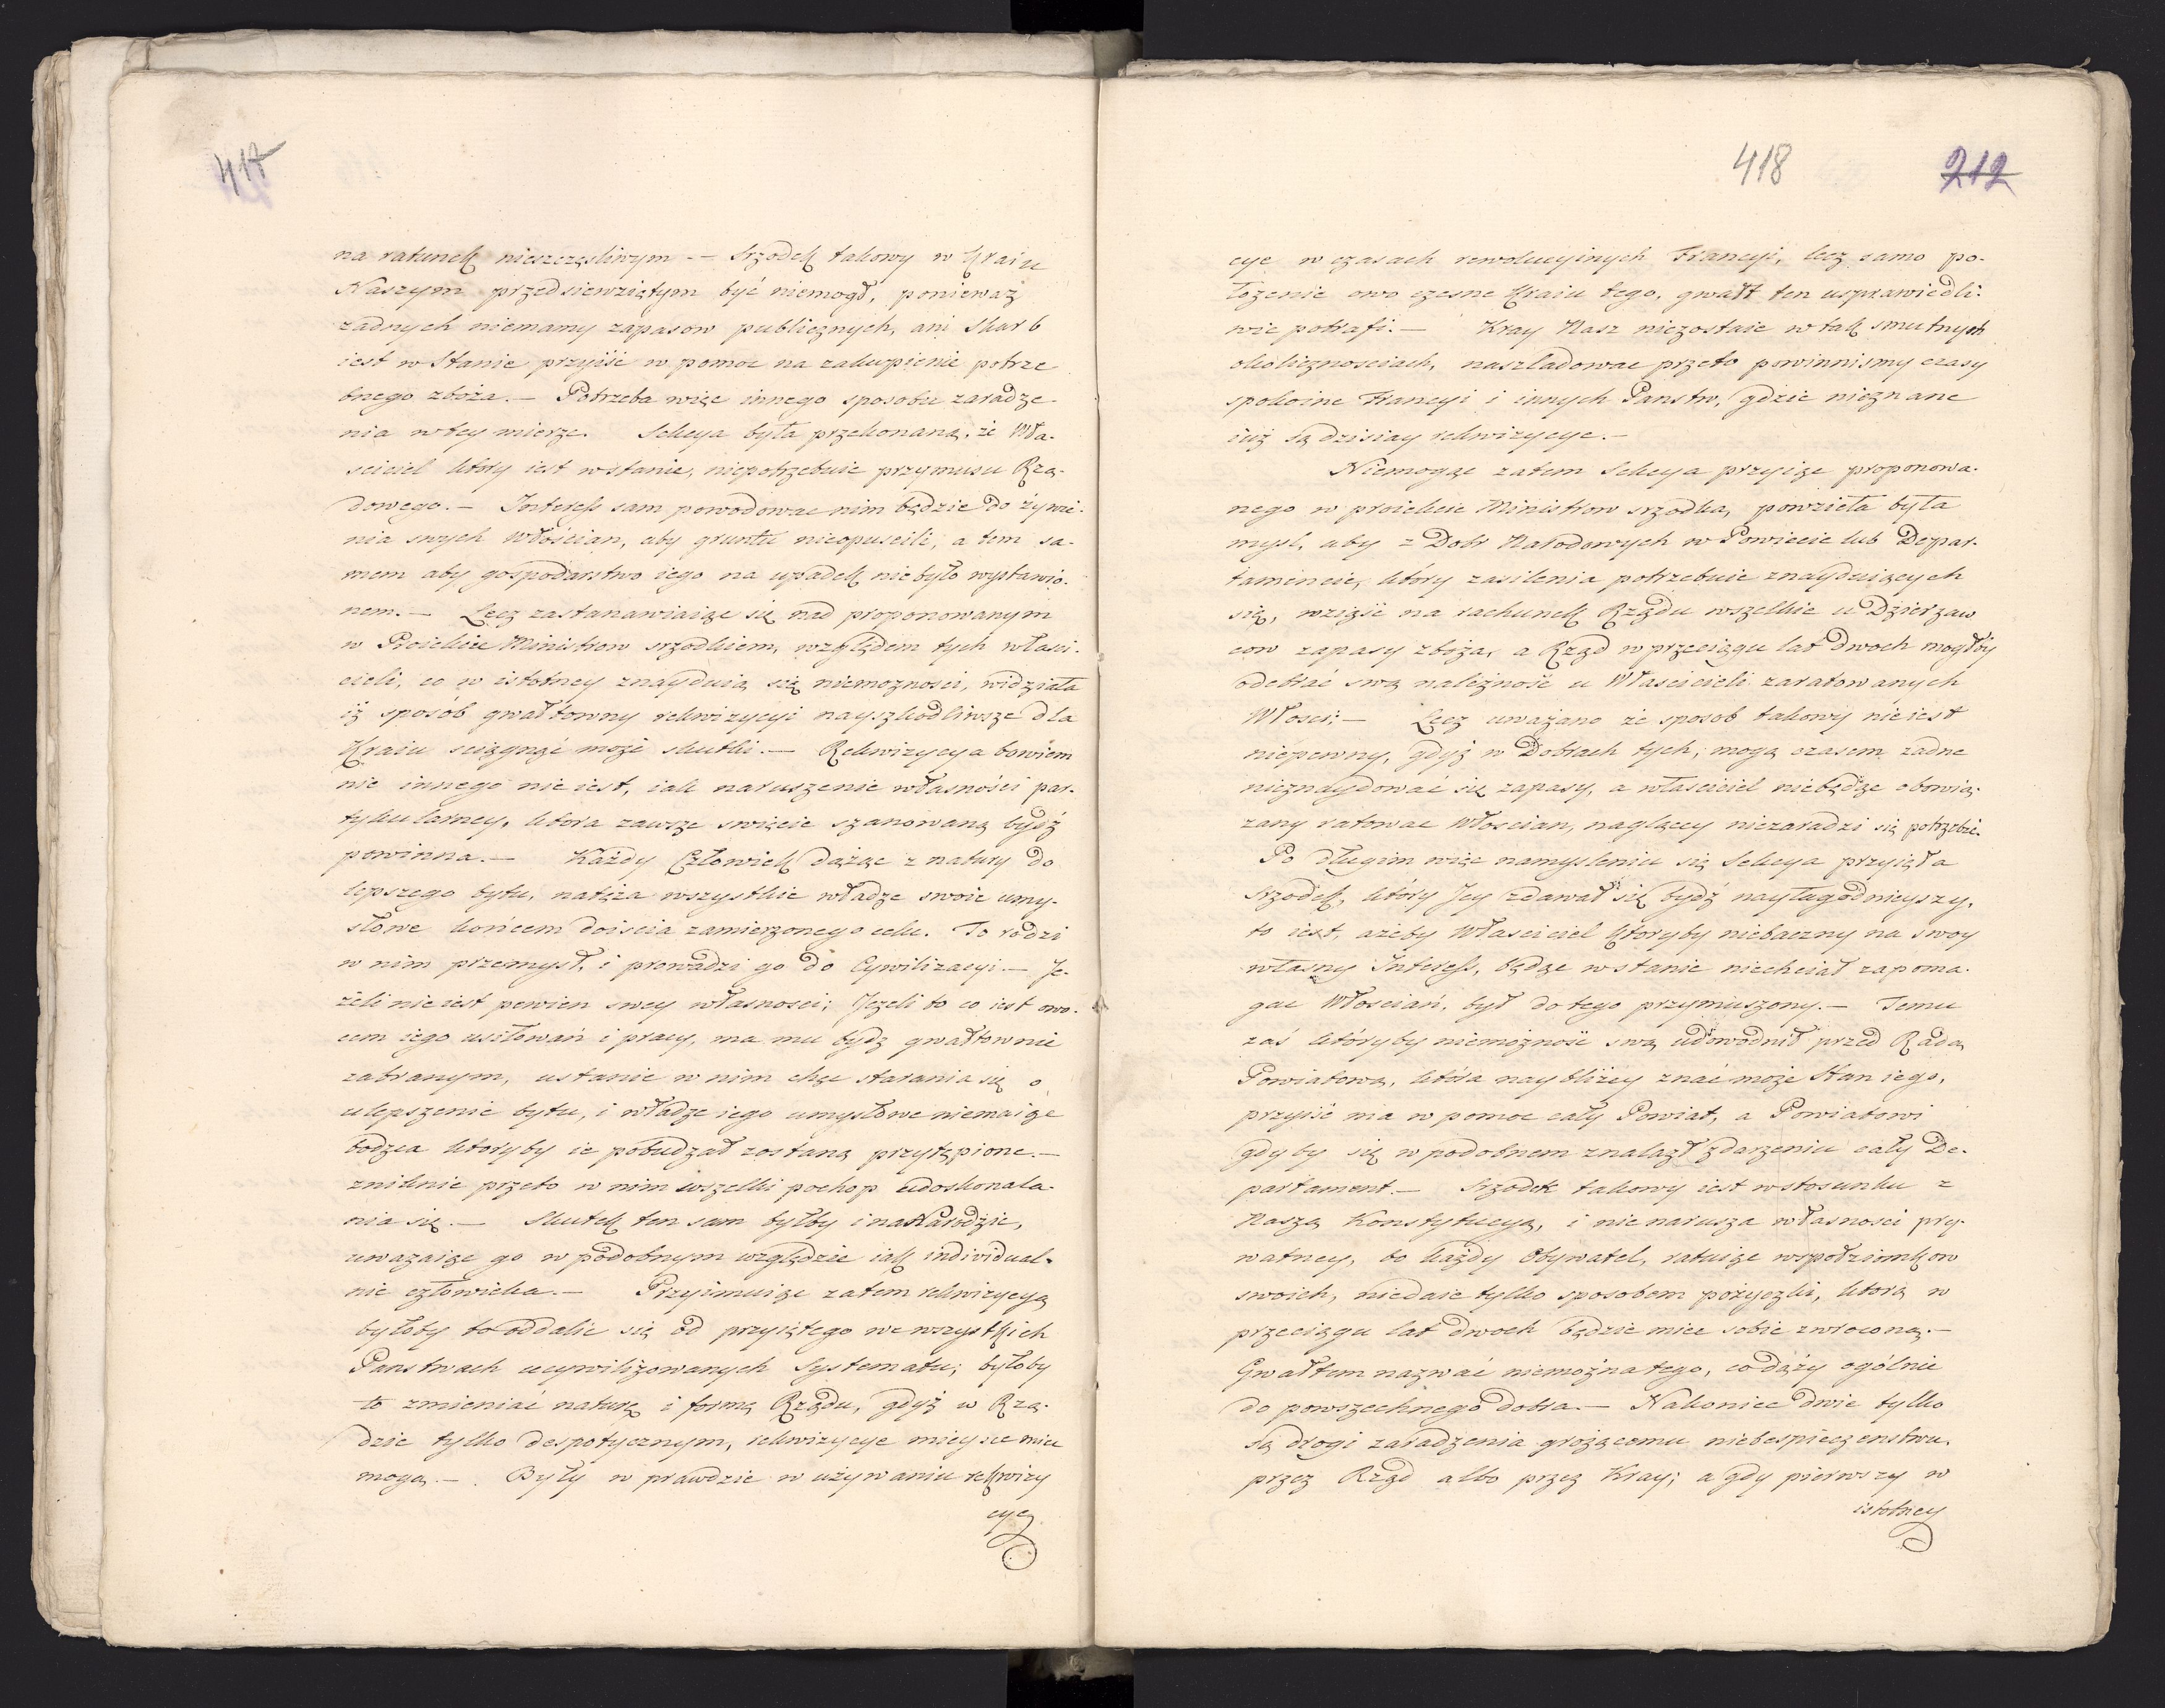 417
na ratunek nieszczęsliwym -- Srzodek takowy w Kraiu
Naszym przedsiewziętym być niemogł, ponieważ
żadnych niemamy zapasow publicznych, ani Skarb
iest w Stanie przyiśc w pomoc na zakupienie potrze
bnego zboża. — Potrzeba więc innego sposobu zaradze-
nia w tey mierze. Sekcya była przekonaną, że Wła-
sciciel ktory iest wstanie, niepotrzebuie przymusu Rzą-
dowego. — Interess sam powodować nim będzie do żywie-
nia swych Włościan, aby gruntu nieopuscili, a tem sa-
mem aby gospodarstwo iego na upadek nie było wystawio-
nem. — Lecz zastanawiaiąc się nad proponowanym
w Proiekcie Ministrow srzodkiem, względem tych własci-
cieli, co w istotney znayduią się niemożnosci, widziała
iż sposób gwałtowny rekwizycyi nayszkodliwsze dla
Kraiu sciągnąć może skutki. — Rekwizycya bowiem
nic innego nie iest, iak naruszenie własności par-
tykularney, ktora zawsze swięcie szanowaną bydź
powinna. — Każdy Człowiek dążąc z natury do
lepszego bytu, natęża wszystkie władze swoie umy-
słowe końcem doiscia zamierzonego celu. To rodzi
w nim przemysł, i prowadzi go do Cywilizacyi. — Je-
żeli nie iest pewien swey własnosci; Jeżeli to co iest owo-
cem iego usiłowań i pracy, ma mu bydz gwałtownie
zabranym, ustanie w nim chęc starania się o
ulepszenie bytu, i władze iego umysłowe niemaiąc
bodzca ktoryby ie pobudzał zostaną przytępione. —
zniknie przeto w nim wszelki pochop udoskonala-
nia się. — Skutek ten sam byłby i na Narodzie,
uwazaiąc go w podobnym względzie iak individual-
nie człowieka. — Przyimuiąc zatem rekwizycyą
byłoby to oddalic się od przyiętego we wszystkich
Panstwach ucywilizowanych Systematu; byłoby
to zmieniać naturę i formę Rządu, gdyż w Rzą-
dzie tylko despotycznym, rekwizycye mieysce miec
mogą. — Były w prawdzie w używaniu rekwizy
cye
418
212
cye w czasach rewolucyinych Francyi, lecz samo po-
łożenie owo czesne Kraiu tego, gwałt ten usprawiedli-
wic potrafi. — Kray Nasz niezostaie w tak smutnych
okolicznosciach, naszladowac przeto powinnismy czasy
spokoine Francyi i innych Panstw, gdzie nieznane
iuż są dzisiay rekwizycye. —
Niemogąc zatem Sekcya przyiąc proponowa-
nego w proiekcie Ministrow srzodka, powzieła była
mysl, aby z Dobr Narodowych w Powiecie lub Depar-
tamencie, ktory zasilenia potrzebuie znayduiących
się, wziąśc na rachunek Rządu wszelkie u Dzierzaw
cow zapasy zboża, a Rząd w przeciągu lat dwoch mogłby
odebrać swą należnośc u Włascicieli zaratowanych
Włosci; — Lecz uważano że sposob takowy nie iest
niepewny, gdyż w Dobrach tych, mogą czasem zadne
nieznaydować się zapasy, a właściciel niebędąc obowią-
zany ratować Włoscian, naglącey niezaradzi się potrzebie.
Po długim więc namysleniu się Sekcya przyięła
Srzodek, ktory Jey zdawał się bydź nayługodnieyszy,
to iest, ażeby Właściciel ktoryby niebaczny na swoy
własny Interess, będąc wstanie niechciał zapoma-
gac Włościan, był do tego przymuszony. — Temu
zaś któryby niemożnośc swą udowodnił przed Radą
Powiatową, która naybliżey znać może Stan iego,
przyiśc ma w pomoc cały Powiat, a Powiatowi
gdyby się w podobnem znalazł zdarzeniu cały De-
partament. — Srzodek takowy iest wstosunku z
Naszą Konstytucyą, i nie narusza własnosci pry-
watney, bo każdy Obywatel, ratuiąc wspołziomkow
swoich, niedaie tylko sposobem pożyczki, ktorą w
przeciągu lat dwoch będzie miec sobie zwroconą. —
Gwałtem nazwać niemożna tego, co dąży ogólnie
do powszechnego dobra. — Nakoniec dwie tylko
są drogi zaradzenia grożącemu niebespieczenstwu,
przez Rząd albo przez Kray; a gdy pierwszy w
istotney